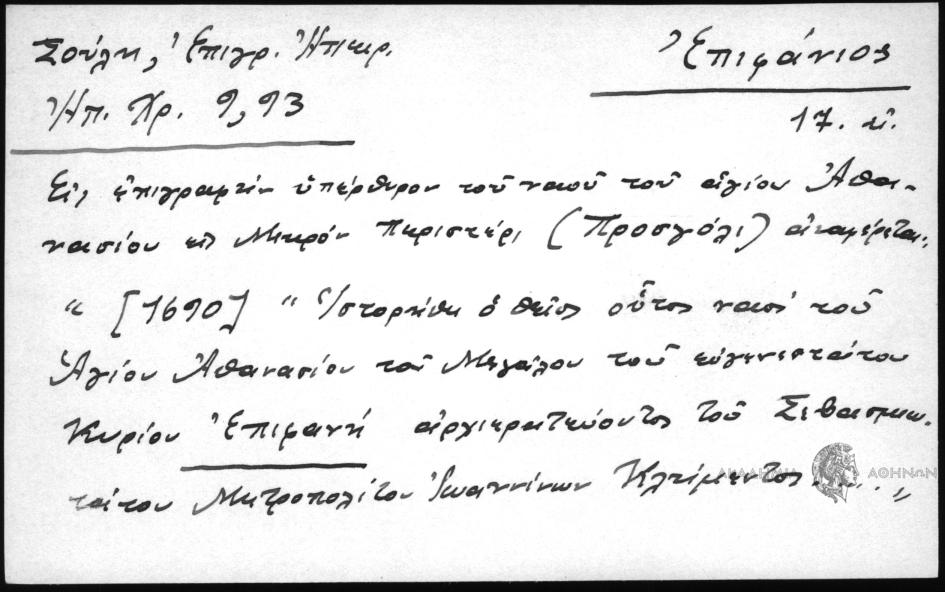 Σούλη, Ἐπιγρ. Ἠπειρ.
Ἠπ. Χρ. 9, 93
Ἐπιφάνιος
17. αἰ.
Εἰς ἐπιγραφὴν ὑπέρθυρον τοῦ ναοῦ τοῦ ἁγίου Ἀθα-
νασίου εἰς Μικρὸν Περιστέρι (Προσγόλι) ἀναφέρεται:
“ [1690] “ Ἱστορήθη ὁ θεῖος οὗτος ναὸς τοῦ
Ἁγίου Ἀθανασίου τοῦ Μεγάλου τοῦ εὐγενεστάτου
Κυρίου Ἐπιφανῆ ἀρχιερατεύοντος τοῦ Σεβασμιω-
τάτου Μητροπολίτου Ἰωαννίνων Κλήμεντος..... „
ΑΚΑΔΗΜΙΑ ΑΘΗΝΩΝ